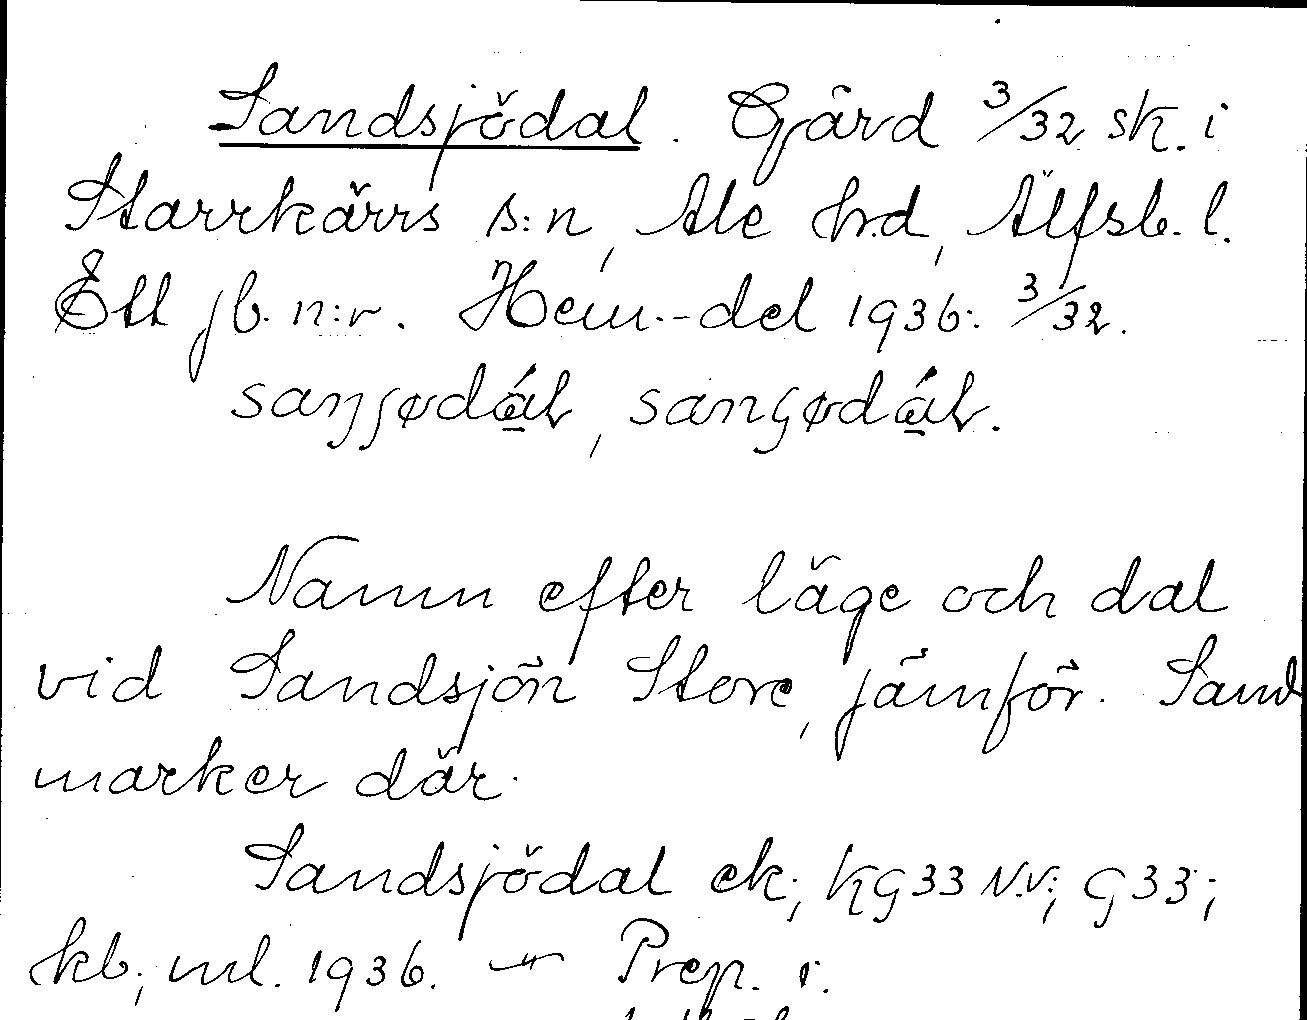 Sandsjödal. Gård 3/32 sk. i
Starrkärrs s:n, Ale hrd, Älfsb. l.
Ett jb. n:r. Hem.-del 1936: 3/32.
Namn efter läge och dal
vid Sandsjön Store, jämför. Sand
marker där.
Sandsjödal ek; KG33 N.V; G33;
kb; ml. 1936. — Prep. i.